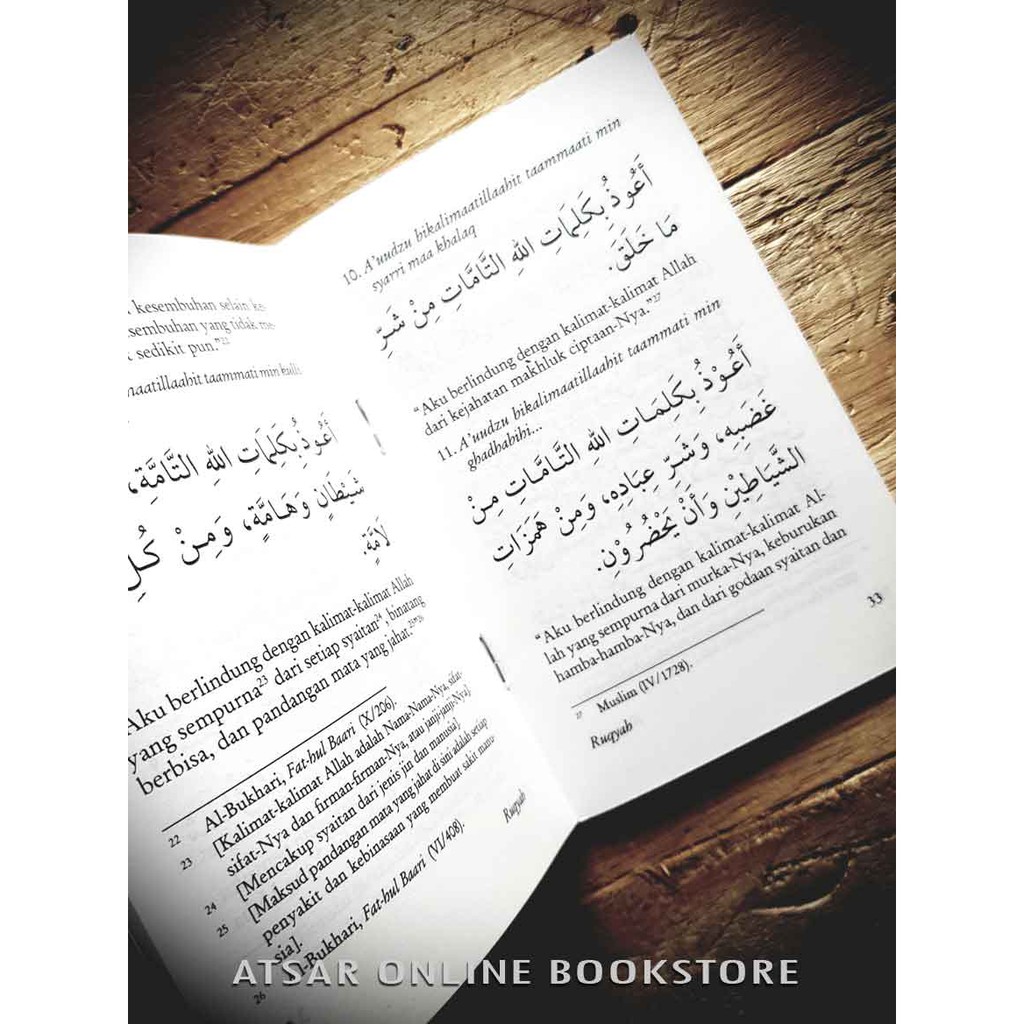 kesembuhan selain
sembuhan yang tidak me-
sedikit pun."²²
maatillaahit taammati min kulli
أَعُوذُ بِكَلِمَاتِ اللهِ التَّامَّةِ،
شَيْطَانٍ وَهَامَّةٍ، وَمِنْ كُلِّ
لَامَّةٍ.
Aku berlindung dengan kalimat-kalimat Allah
yang sempurna²³ dari setiap syaitan²⁴, binatang
berbisa, dan pandangan mata yang jahat.²⁵"²⁶
22 Al-Bukhari, Fat-hul Baari (X/206).
23 [Kalimat-kalimat Allah adalah Nama-Nama-Nya, sifat-
sifat-Nya dan firman-firman-Nya, atau janji-janji-Nya]
24 [Mencakup syaitan dari jenis jin dan manusia]
25 [Maksud pandangan mata yang jahat di sini adalah setiap
penyakit dan kebinasaan yang membuat sakit manu-
sia].
26 Al-Bukhari, Fat-hul Baari (VI/408).
Ruqyah
10. A'uudzu bikalimaatillaahit taammaati min
syarri maa khalaq
أَعُوذُ بِكَلِمَاتِ اللهِ التَّامَّاتِ مِنْ شَرِّ
مَا خَلَقَ.
"Aku berlindung dengan kalimat-kalimat Allah
dari kejahatan makhluk ciptaan-Nya."²⁷
11. A'uudzu bikalimaatillaahit taammati min
ghadhabihi...
أَعُوْذُ بِكَلِمَاتِ اللهِ التَّامَّاتِ مِنْ
غَضَبِهِ، وَشَرِّ عِبَادِهِ، وَمِنْ هَمَزَاتِ
الشَّيَاطِيْنِ وَأَنْ يَحْضُرُوْنِ.
"Aku berlindung dengan kalimat-kalimat Al-
lah yang sempurna dari murka-Nya, keburukan
hamba-hamba-Nya, dan dari godaan syaitan dan
27 Muslim (IV/1728).
Ruqyah
33
ATSAR ONLINE BOOKSTORE